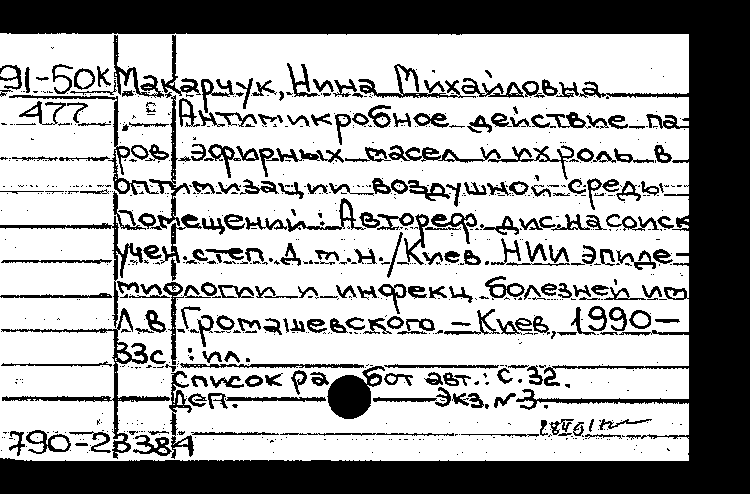 91-50К Макарчук, Нина Михайловна
477 Антимикробное действие па-
ров эфирных масел и их роль в
оптимизации воздушной среды
помещений: Автореф. дис. на соиск
учен. степ. Д. м. н. / Киев. НИИ эпиде-
миологии и инфекц болезней им
Л В Громашевского. — Киев, 1990—
33с : ил.
Список работ авт.: с. 32.
Деп. Экз. № 3.
790-23384